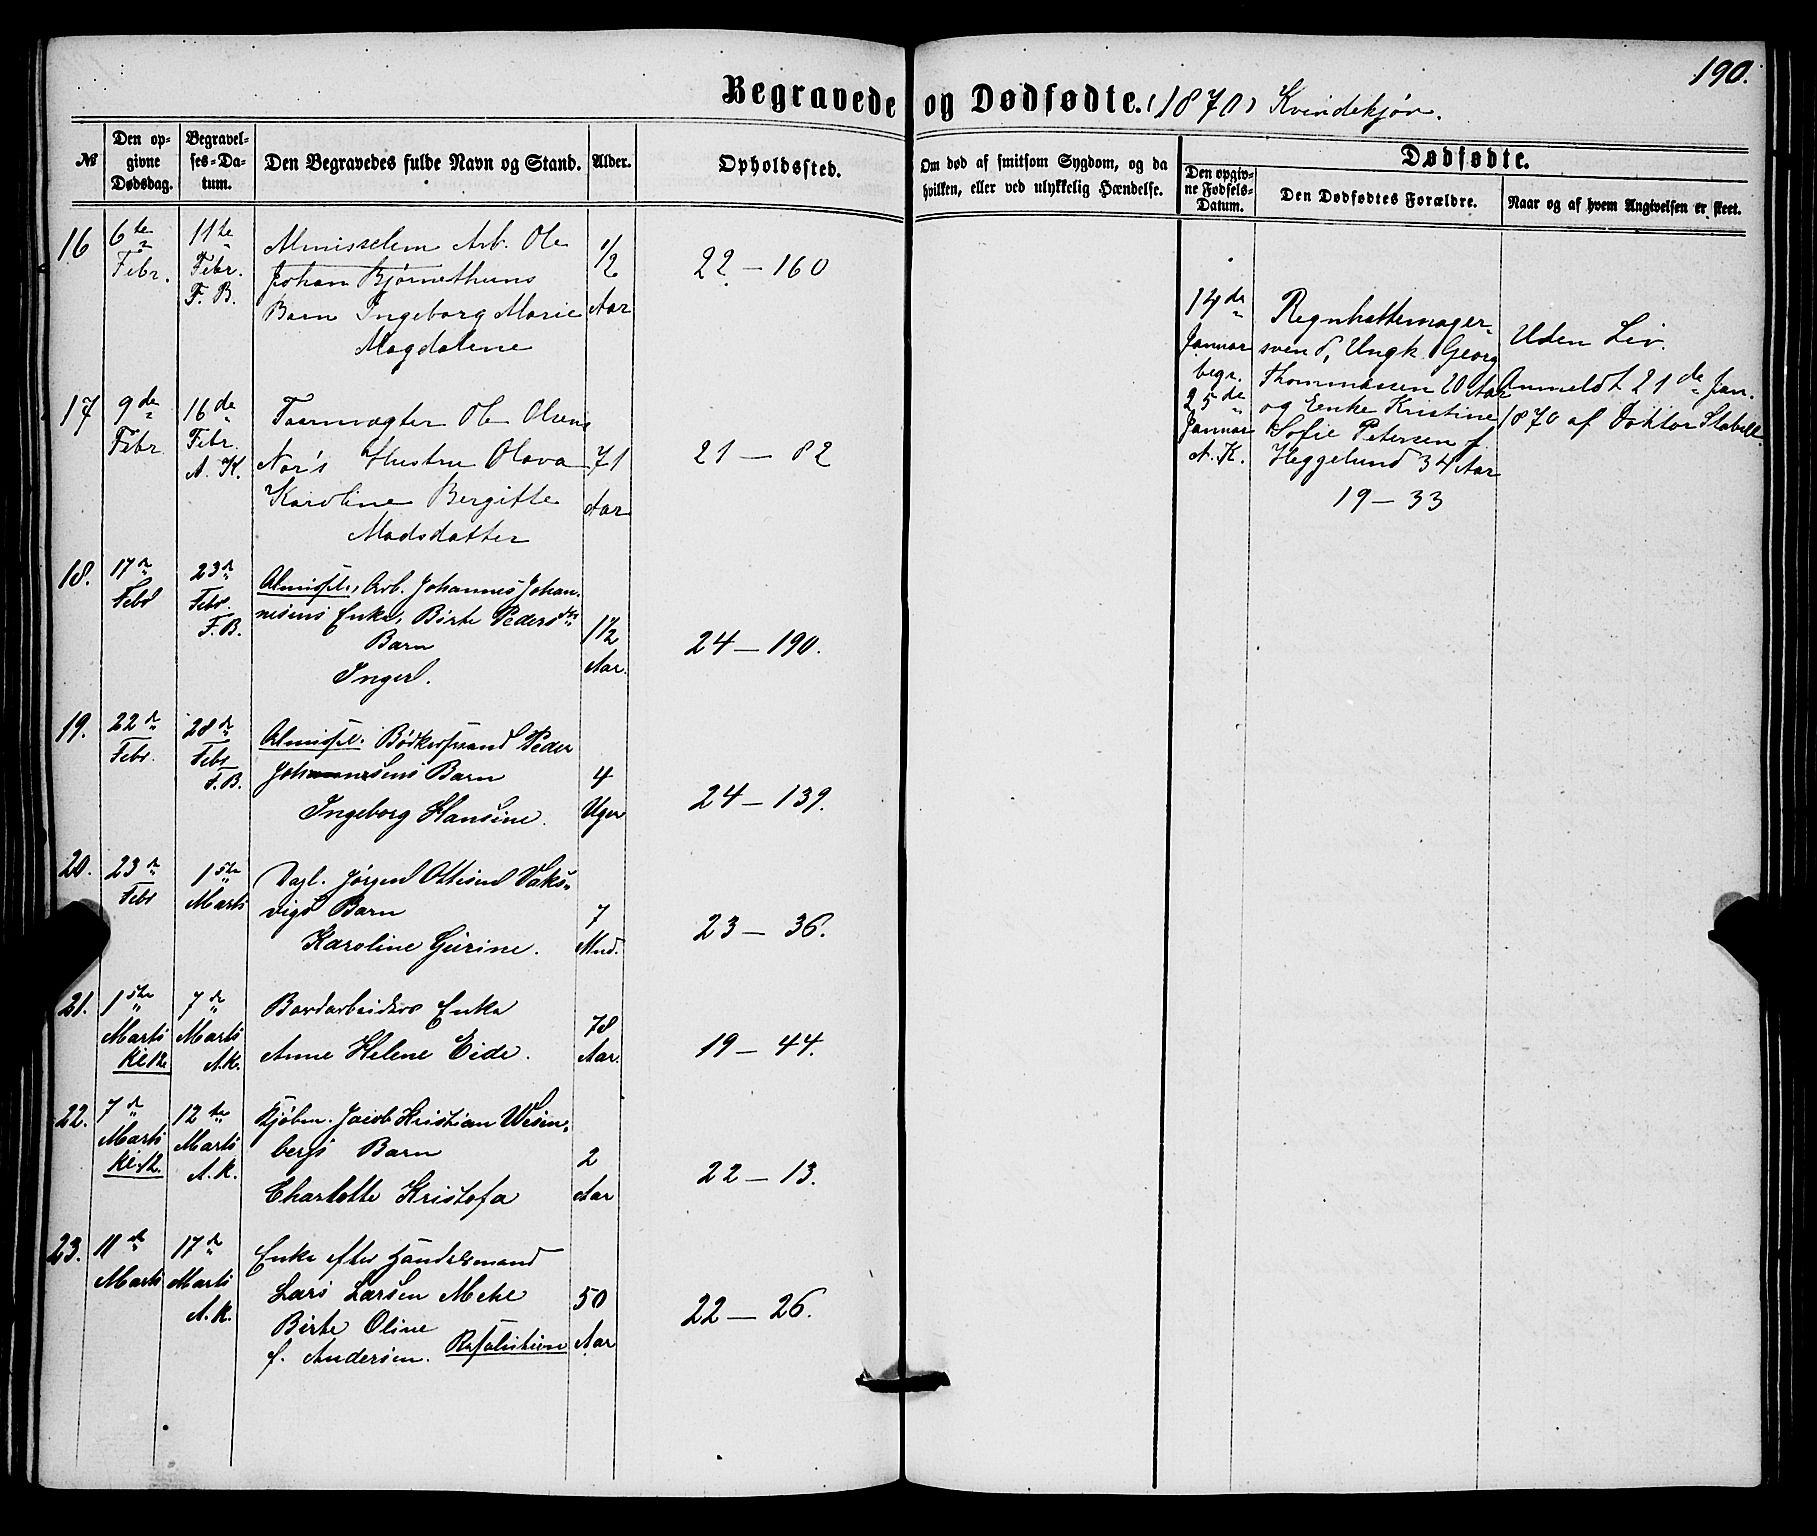 190.
Begravede og Dødfødte. (1870) Kvindekjøn.
№
Den opgivne Dødsdag.
Begravelses-Datum.
Den Begravedes fulde Navn og Stand.
Alder.
Opholdssted.
Om død af smitsom Sygdom, og da hvilken, eller ved ulykkelig Hændelse.
Dødfødte.
Den opgivne Fødsels-Datum.
Den Dødfødtes Forældre.
Naar og af hvem Angivelsen er skeet.
16 6te Febr. 11te Febr. F. B.
Almisselem Arb. Ole
Johan Bjørnethuns
Barn Ingeborg Marie
Magdalene
1/2 Aar
22 – 160
17 9de Febr 16de Febr. A. K.
Taarnvægter Ole Olsen
Nor's Hustru Olava
Karoline Bergitte
Madsdatter
71 Aar
21 – 82
18. 17de Febr 23de Febr. F. B.
Almisel., Arb. Johannes Johan-
nesens Enke, Birte Pedersdtr
Barn
Inger.
1 1/2 Aar.
24 – 190.
19. 22de Febr. 28de Febr F. B.
Almisel. Bødkersvend Peder
Johannesens Barn
Ingeborg Hansine.
4 Uger
24 – 139.
20. 23de Febr 1ste Marts
Dagl. Jørgen Ottesen Vaks-
vigs Barn
Karoline Gurine.
7 Mnd.
23 – 36.
21. 1ste Marts 7de Marts A. K.
Bordarbeiders Enke
Anne Helene Eide.
78 Aar.
19 – 44.
22. 7de Marts 12te Marts A. K.
Kjøbm. Jacob Kristian Wesen-
bergs Barn
Charlotte Kristofa
2 Aar
22 – 13.
23. 11de Marts 17de Marts A. K.
Enke efter Handelsmand
Lars Larsen
Birte Oline
f. Andersen. Resolution
50 Aar
22 – 26.
14de Januar begr. 25de Januar A. K.
Regnhattemager-
svend, Ungk. Georg
Thommassen 20 Aar
og Enke Kristine
Sofie Petersen f
Heggelund 34 Aar
19 – 33
Uden Liv.
Anmeldt 21de Jan.
1870 af Doktor Stabell